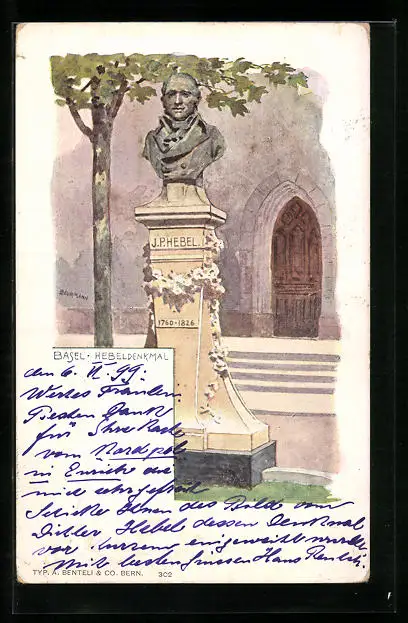 J.P. HEBEL.
1760-1826
BASEL · HEBELDENKMAL
den 6. VI 99:
Wertes Fräulein
Besten Dank
für Ihre Karte
vom Nordpol
in Zürich die
mich sehr gefreut
Schicke Ihnen das Bild vom
Dichter Hebel dessen Denkmal
vor kurzem eingeweiht wurde
Mit besten Grüssen Hans
TYP. A. BENTELI & CO. BERN. 302